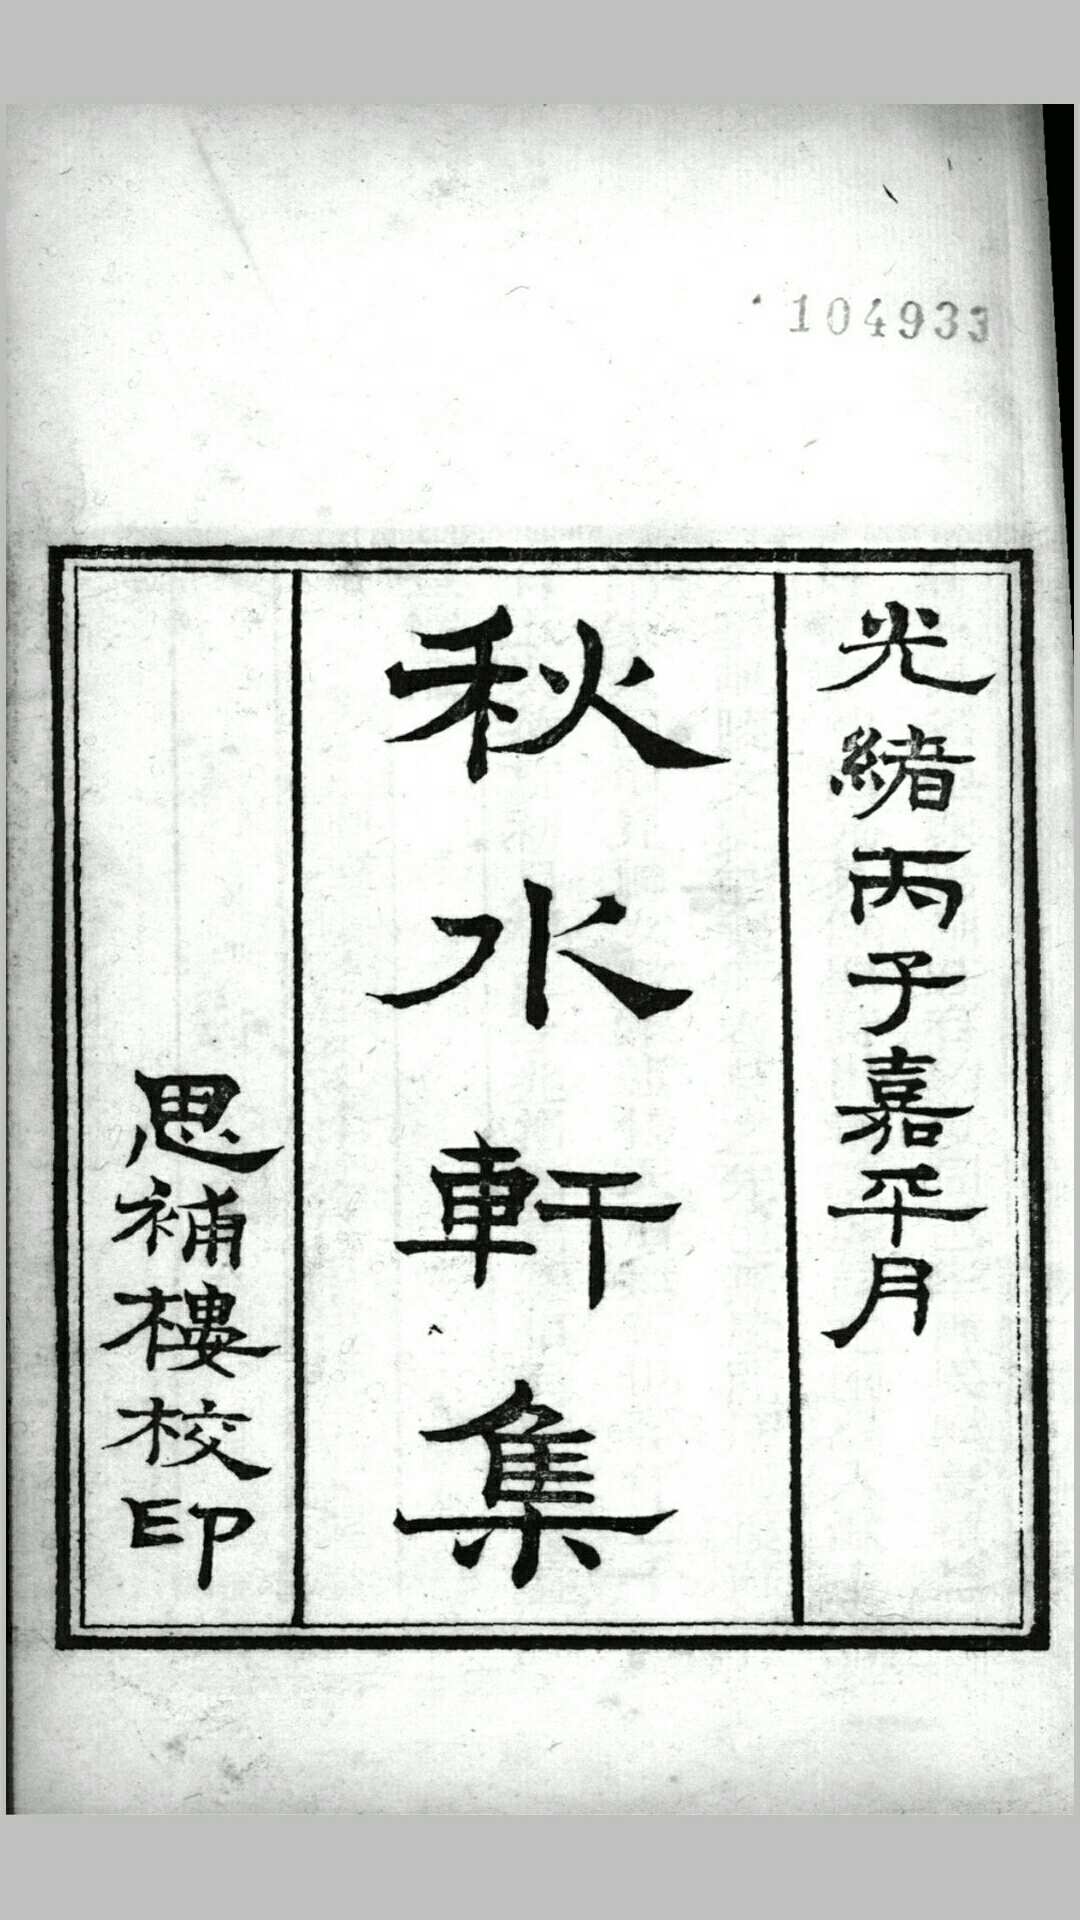 104933
光緒丙子嘉平月
秋水軒集
思補樓校印